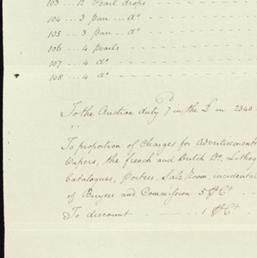 103 .. 12 Pearl drops
104 .. 3 pair .. do
105 .. 3 pair .. do
106 .. 4 pearls
107 .. 4 do
108 .. 4 do
To the Auction duty 7 in the £ in 2340
"
To proportion of Charges for Advertisements
Papers, the french and Dutch Do,
Catalogues, Porters, Sale Room, incidental
of Buyers and Commission 5 P Ct
To discount 1 P Ct